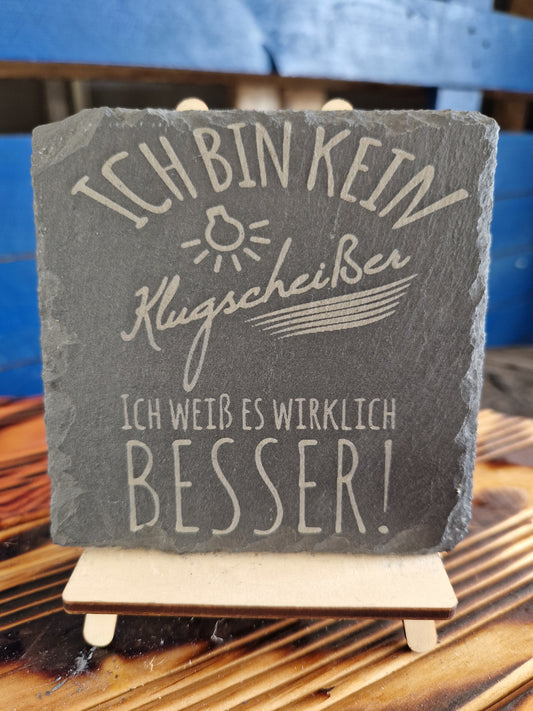 ICH BIN KEIN
Klugscheißer
ICH WEIß ES WIRKLICH
BESSER!